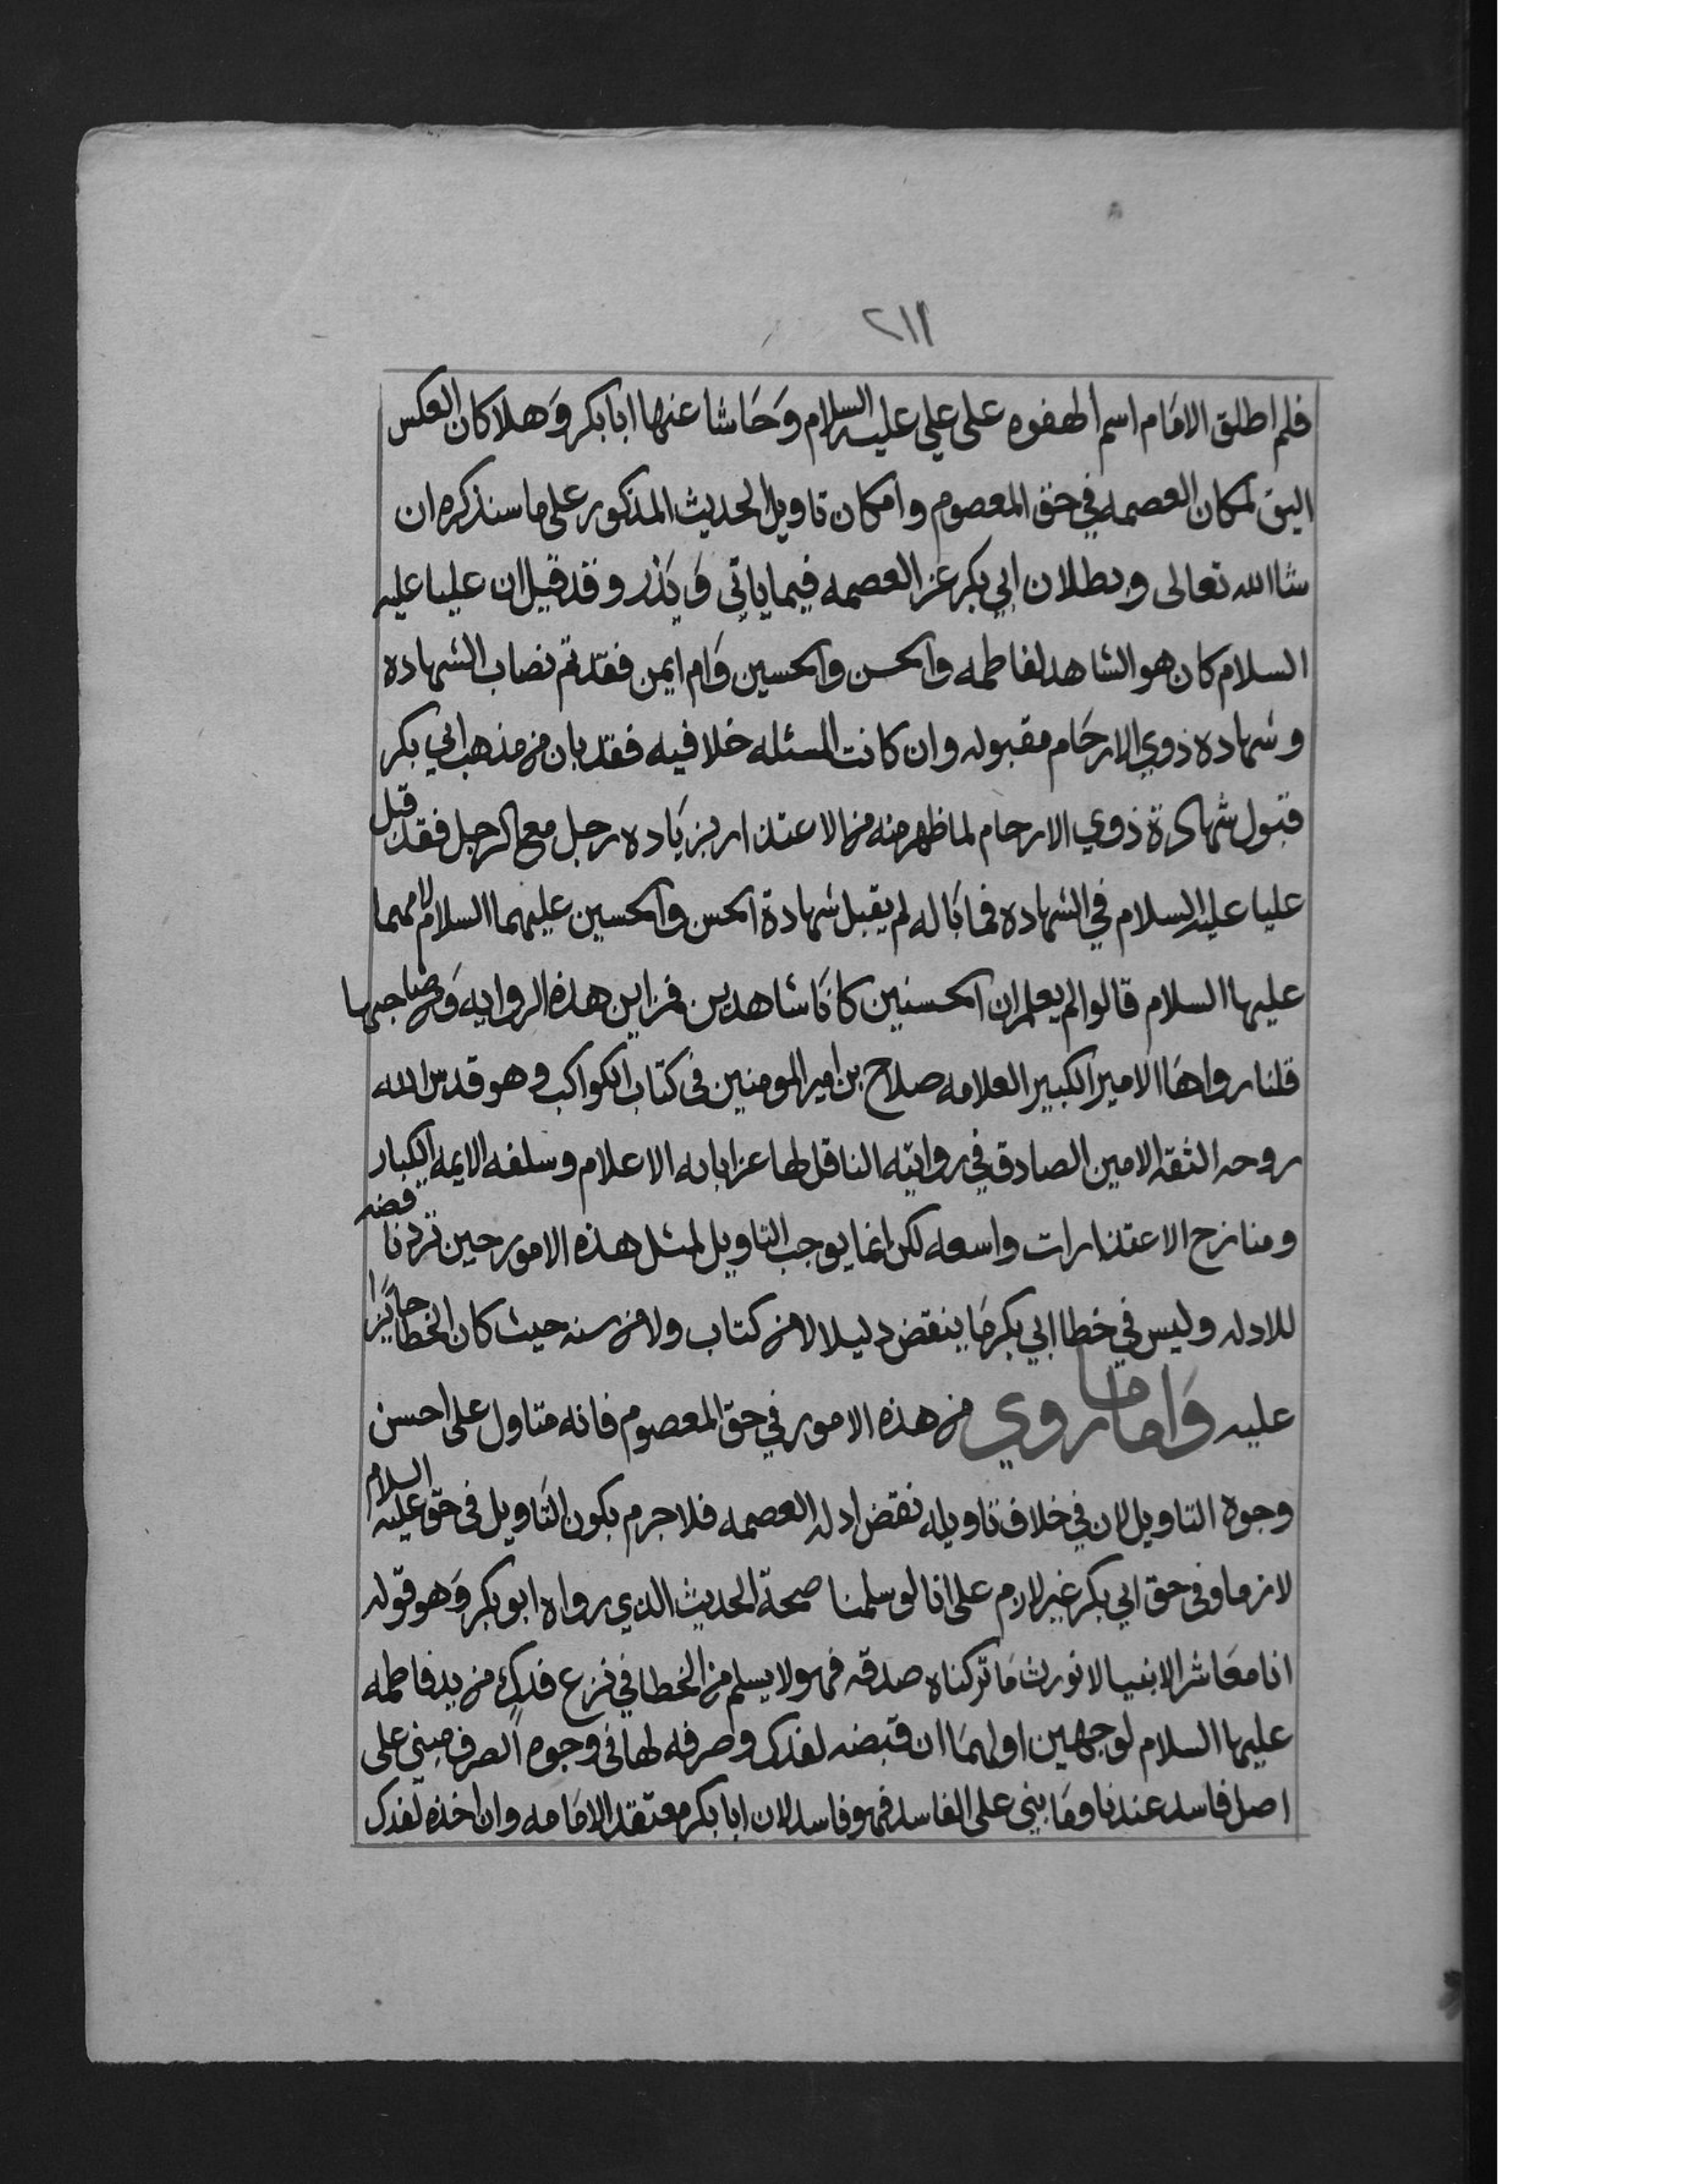 ٢١١
فلم اطلق الامام اسم الهفوه على علي عليه السلام وحاشا عنها ابا بكر وهلا كان العكس
اليق لمكان العصمه في حق المعصوم وامكان تاويل الحديث المذكور على ما سنذكره ان
شا الله تعالى وبطلان ابي بكر عن العصمه فيما ياتي ويذر وقد قيل ان عليا عليه
السلام كان هو الشاهد لفاطمه والحسن والحسين وام ايمن فقد تم نصاب الشهاده
وشهاده ذوي الارحام مقبوله وان كانت المسئله خلافيه فقد بان من مذهب ابي بكر
قبول شهادة ذوي الارحام لما ظهر منه من الاعتذار بزياده رجل مع الرجل فقد قبل
عليا عليه السلام في الشهاده فما باله لم يقبل شهادة الحسن والحسين عليهما السلام لامهما
عليها السلام قالوا لم يعلم ان الحسنين كانا شاهدين فمن اين هذه الروايه ومن صاحبها
قلنا رواها الامير الكبير العلامه صلاح بن امير المومنين في كتاب الكواكب وهو قدس الله
روحه الثقه الامين الصادق في روايته الناقل لها عن ابايه الاعلام وسلفه الايمه الكبار
ومنازح الاعتذارات واسعه لكن انما يوجب التاويل لمثل هذه الامور حين تردنا قضه
للادله وليس في خطا ابي بكر ما ينقض دليلا لا من كتاب ولا من سنه حيث كان الخطا جايزا
عليه واما ما روي من هذه الامور في حق المعصوم فانه متاول على احسن
وجوه التاويل لان في خلاف تاويله نقض ادله العصمه فلا جرم يكون التاويل في حق عليه السلام
لازما وفي حق ابي بكر غير لازم على انا لو سلمنا صحة الحديث الذي رواه ابو بكر وهو قوله
انا معاشر الانبيا لا نورث ما تركناه صدقه فهو لا يسلم من الخطا في نزع فدك من يد فاطمه
عليها السلام لوجهين اولهما ان قبضه لفدك وصرفه لها في وجوه الصرف مبني على
اصل فاسد عندنا وما بني على الفاسد فهو فاسد لان ابا بكر معتقد الامامه وان اخذه لفدك